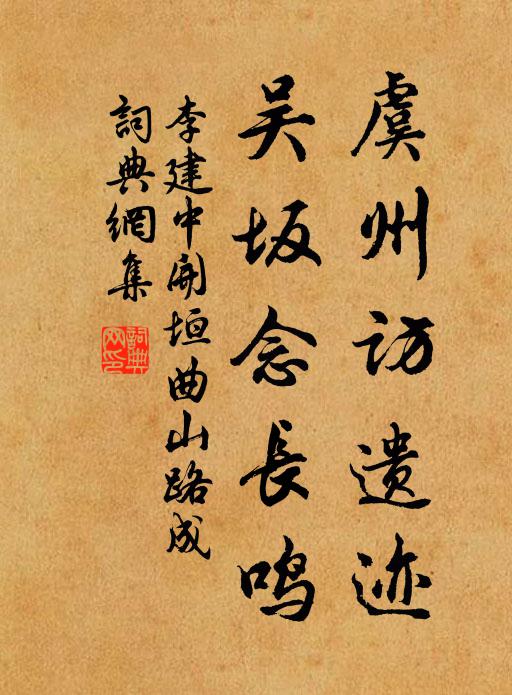 虞州访遗迹
吴坂念長鸣
李建中開垣曲山路成
詞典網集
詞典网印